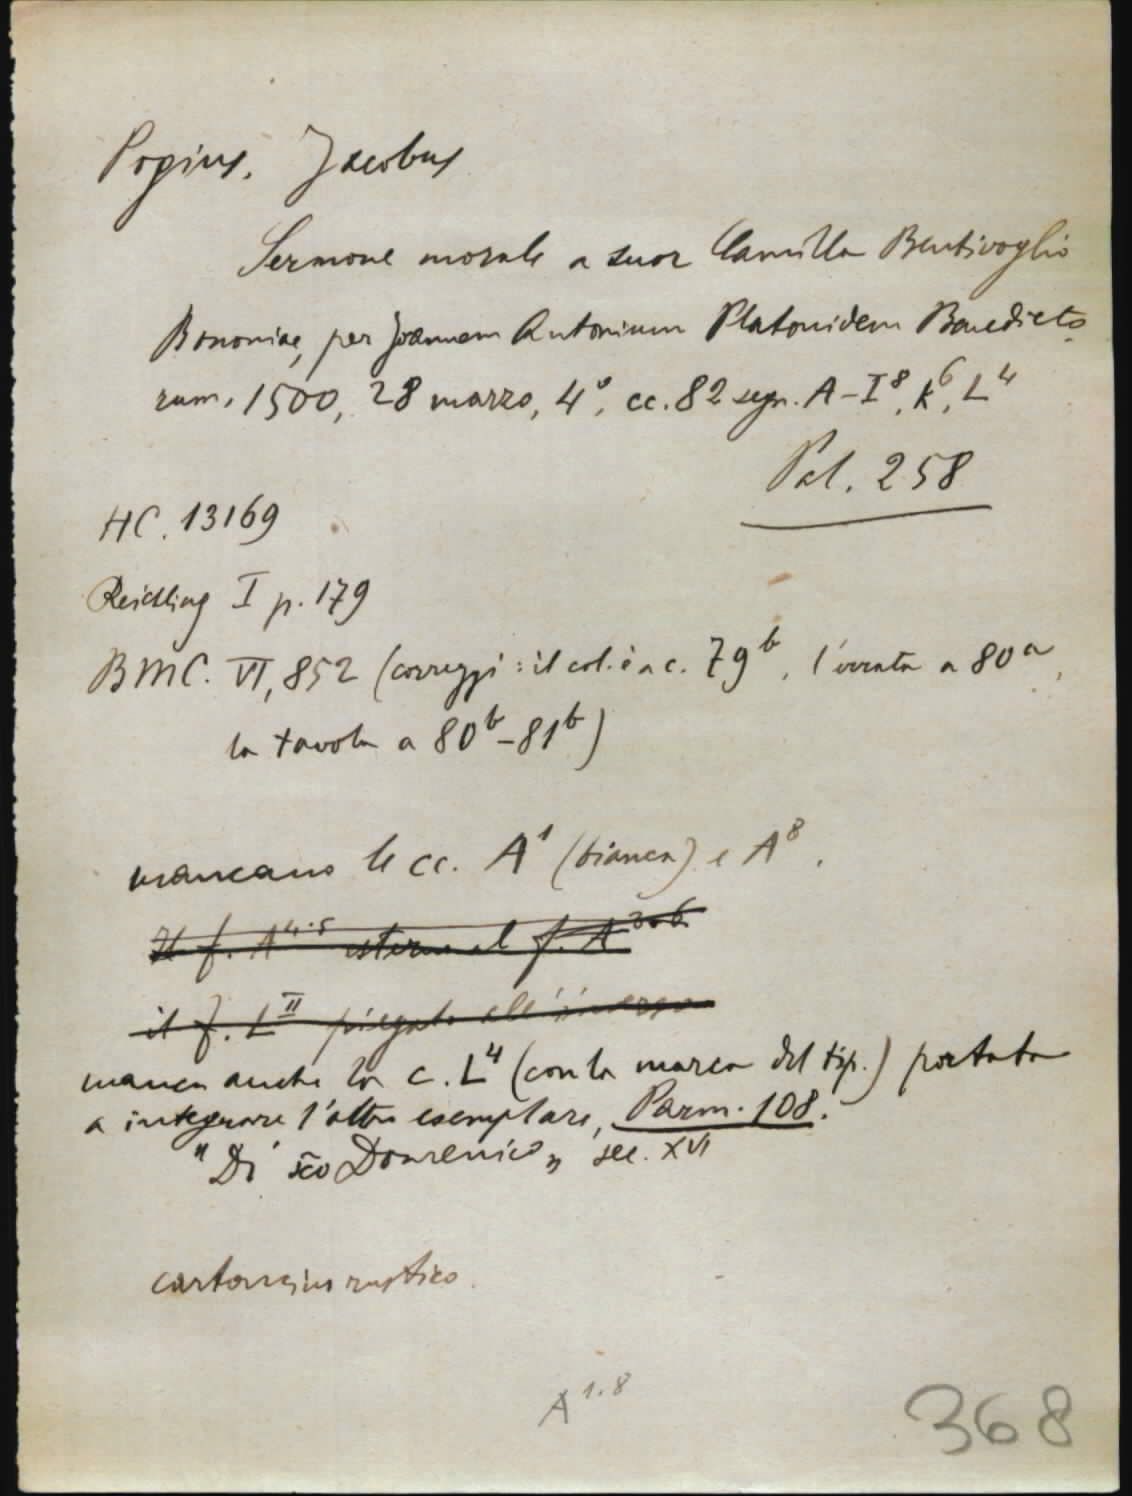 Pogius, Jacobus
Sermone morale a suor Camilla Bentivoglio
Bononiae, per Joannem Antonium Platonidem Benedicto
rum, 1500, 28 marzo, 4°, cc. 82 segn. A-I⁸, K⁶, L⁴
Pal. 258
HC. 13169
Reichling I p. 179
BMC. VI, 852 (correggi: il col. è a c. 79ᵇ, l'errata a 80ᵃ,
la tavola a 80ᵇ-81ᵇ)
mancano le cc. A¹ (bianca) e A⁸.
Il f. A⁴·⁵ esterno al f. A³·⁶
il f. L II piegato all'inverso
manca anche la c. L⁴ (con la marca del tip.) portata
a integrare l'altro esemplare, Parm. 108.
"Di sc̄o Domenico" sec. XVI
cartoncino rustico.
A¹·⁸
368